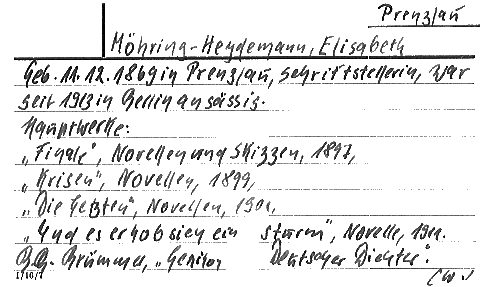 Prenzlau
Möhring-Heydemann, Elisabeth
Geb. 11.12.1869 in Prenzlau, Schriftstellerin, war
seit 1913 in Berlin ansässig.
Hauptwerke:
„Finale", Novellen und Skizzen, 1897,
„Krisen", Novellen, 1899,
„Die Letzten", Novellen, 1901,
„Und es erhob sich ein Sturm", Novelle, 1911.
Brümmer, „Lexikon Deutscher Dichter".